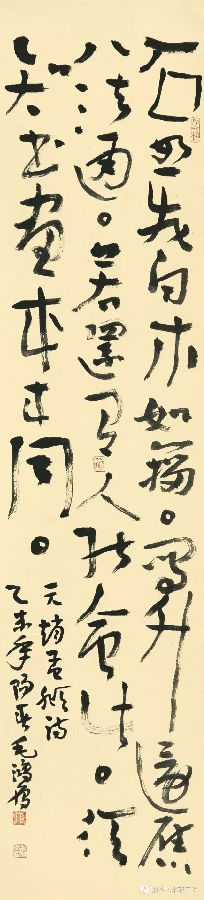 石如飛白木如籀。寫竹還應
八法通。若還有人能會此。須
知書畫本来同。
元趙孟頫詩
乙未年陽春毛鴻